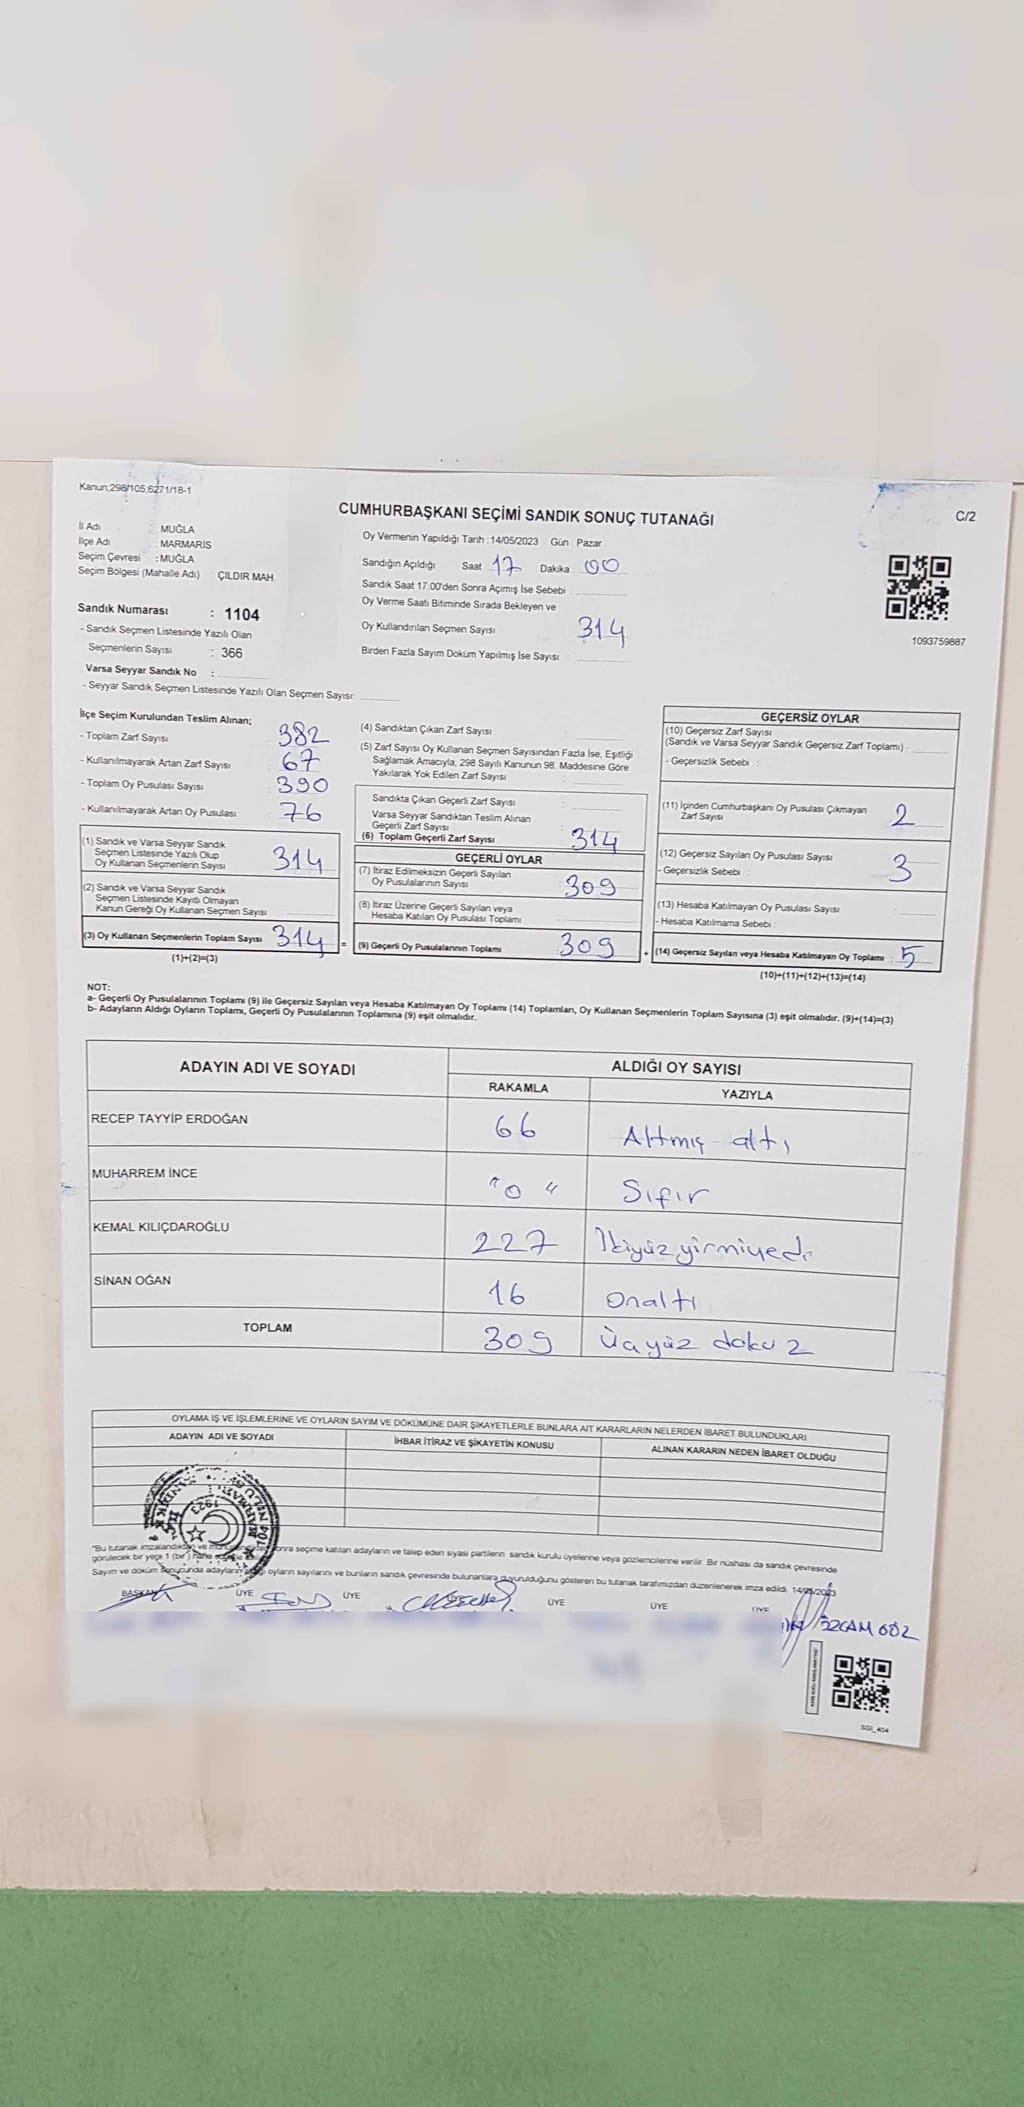 Kanun;298/105;6271/18-1
CUMHURBAŞKANI SEÇİMİ SANDIK SONUÇ TUTANAĞI
C/2
İl Adı : MUĞLA
İlçe Adı : MARMARİS
Seçim Çevresi : MUĞLA
Seçim Bölgesi (Mahalle Adı) : ÇILDIR MAH.
Sandık Numarası : 1104
- Sandık Seçmen Listesinde Yazılı Olan
Seçmenlerin Sayısı : 366
Varsa Seyyar Sandık No :
- Seyyar Sandık Seçmen Listesinde Yazılı Olan Seçmen Sayısı:
Oy Vermenin Yapıldığı Tarih :14/05/2023 Gün : Pazar
Sandığın Açıldığı Saat 17 Dakika : 00
Sandık Saat 17.00'den Sonra Açımış İse Sebebi :
Oy Verme Saati Bitiminde Sırada Bekleyen ve
Oy Kullandırılan Seçmen Sayısı 314
Birden Fazla Sayım Döküm Yapılmış İse Sayısı :
1093759887
İlçe Seçim Kurulundan Teslim Alınan;
- Toplam Zarf Sayısı : 382
- Kullanılmayarak Artan Zarf Sayısı : 67
- Toplam Oy Pusulası Sayısı : 390
- Kullanılmayarak Artan Oy Pusulası : 76
(1) Sandık ve Varsa Seyyar Sandık
Seçmen Listesinde Yazılı Olup
Oy Kullanan Seçmenlerin Sayısı : 314
(2) Sandık ve Varsa Seyyar Sandık
Seçmen Listesinde Kayıtlı Olmayan
Kanun Gereği Oy Kullanan Seçmen Sayısı :
(3) Oy Kullanan Seçmenlerin Toplam Sayısı : 314 =
(1)+(2)=(3)
(4) Sandıktan Çıkan Zarf Sayısı :
(5) Zarf Sayısı Oy Kullanan Seçmen Sayısından Fazla İse, Eşitliği
Sağlamak Amacıyla, 298 Sayılı Kanunun 98. Maddesine Göre
Yakılarak Yok Edilen Zarf Sayısı :
Sandıkta Çıkan Geçerli Zarf Sayısı :
Varsa Seyyar Sandıktan Teslim Alınan
Geçerli Zarf Sayısı :
(6) Toplam Geçerli Zarf Sayısı : 314
GEÇERLİ OYLAR
(7) İtiraz Edilmeksizin Geçerli Sayılan
Oy Pusulalarının Sayısı : 309
(8) İtiraz Üzerine Geçerli Sayılan veya
Hesaba Katılan Oy Pusulası Toplamı :
(9) Geçerli Oy Pusulalarının Toplamı : 309 +
GEÇERSİZ OYLAR
(10) Geçersiz Zarf Sayısı
(Sandık ve Varsa Seyyar Sandık Geçersiz Zarf Toplamı) :
- Geçersizlik Sebebi :
(11) İçinden Cumhurbaşkanı Oy Pusulası Çıkmayan
Zarf Sayısı : 2
(12) Geçersiz Sayılan Oy Pusulası Sayısı : 3
- Geçersizlik Sebebi :
(13) Hesaba Katılmayan Oy Pusulası Sayısı :
- Hesaba Katılmama Sebebi :
(14) Geçersiz Sayılan veya Hesaba Katılmayan Oy Toplamı : 5
(10)+(11)+(12)+(13)=(14)
NOT:
a- Geçerli Oy Pusulalarının Toplamı (9) ile Geçersiz Sayılan veya Hesaba Katılmayan Oy Toplamı (14) Toplamları, Oy Kullanan Seçmenlerin Toplam Sayısına (3) eşit olmalıdır. (9)+(14)=(3)
b- Adayların Aldığı Oyların Toplamı, Geçerli Oy Pusulalarının Toplamına (9) eşit olmalıdır.
ADAYIN ADI VE SOYADI ALDIĞI OY SAYISI
RAKAMLA YAZIYLA
RECEP TAYYİP ERDOĞAN 66 Altmış altı
MUHARREM İNCE "0" Sıfır
KEMAL KILIÇDAROĞLU 227 İkiyüzyirmiyedi
SİNAN OĞAN 16 onaltı
TOPLAM 309 Üçyüz dokuz
OYLAMA İŞ VE İŞLEMLERİNE VE OYLARIN SAYIM VE DÖKÜMÜNE DAİR ŞİKAYETLERLE BUNLARA AİT KARARLARIN NELERDEN İBARET BULUNDUKLARI
ADAYIN ADI VE SOYADI İHBAR İTİRAZ VE ŞİKAYETİN KONUSU ALINAN KARARIN NEDEN İBARET OLDUĞU
1923
"Bu tutanak imzalandıktan ve sonra seçime katılan adayların ve talep eden siyasi partilerin sandık kurulu üyelerine veya gözlemcilerine verilir. Bir nüshası da sandık çevresinde
görülecek bir yere 1 (bir) hafta
Sayım ve döküm sonucunda adayların aldığı oyların sayılarını ve bunların sandık çevresinde bulunanlara duyurulduğunu gösteren bu tutanak tarafımızdan düzenlenerek imza edildi. 14/05/2023
BAŞKAN ÜYE ÜYE ÜYE ÜYE ÜYE
ÖZÇAM GÖZ
SGI_404